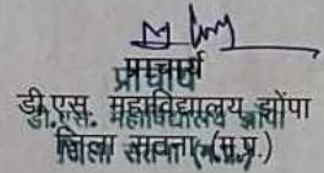 प्राचार्य
डी.एस. महाविद्यालय झोंपा
जिला (म.प्र.)